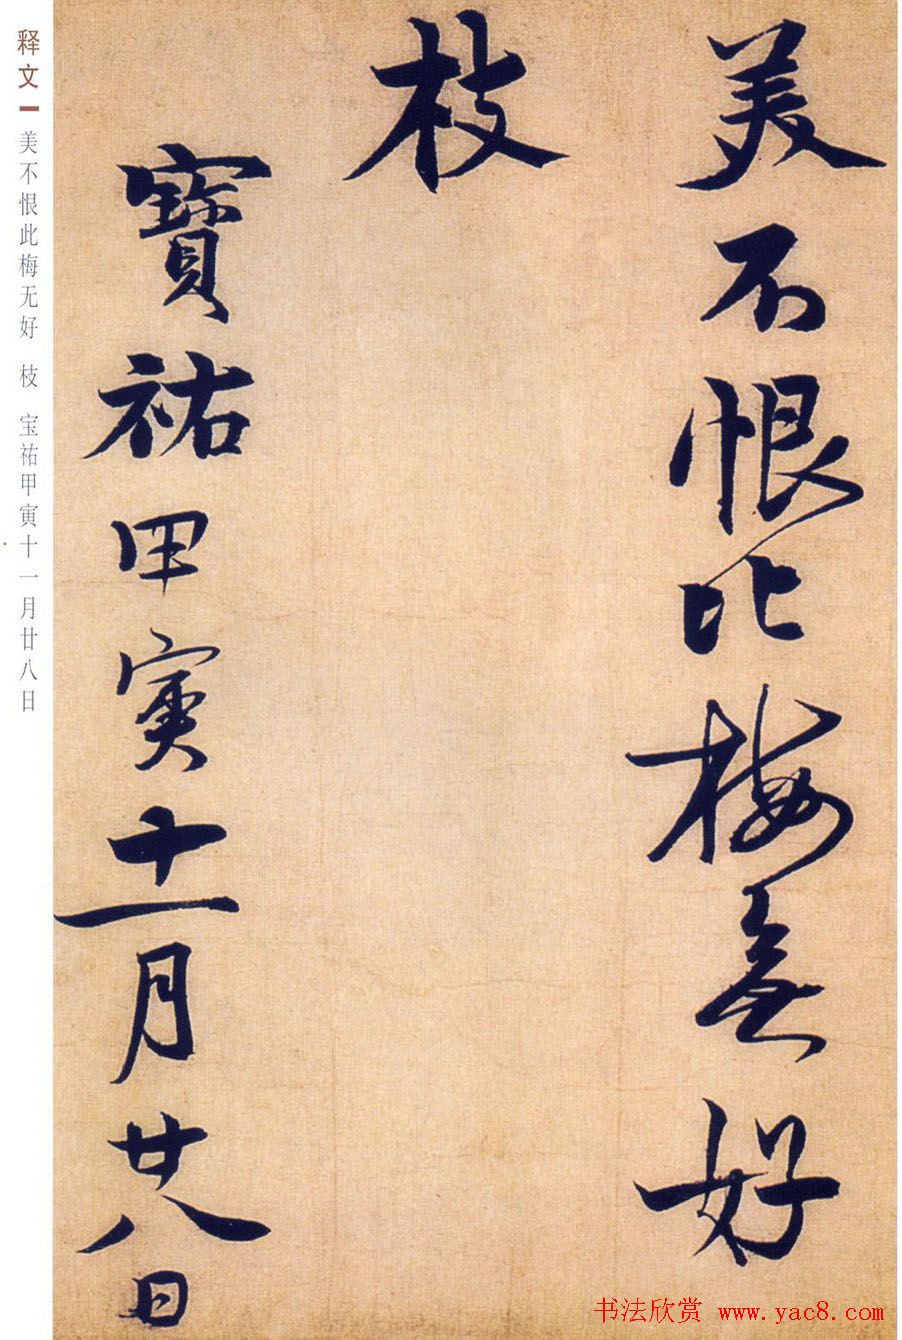 美不恨此梅無好
枝
寶祐甲寅十一月廿八日
释文
美不恨此梅无好 枝 宝祐甲寅十一月廿八日
书法欣赏 www.yac8.com